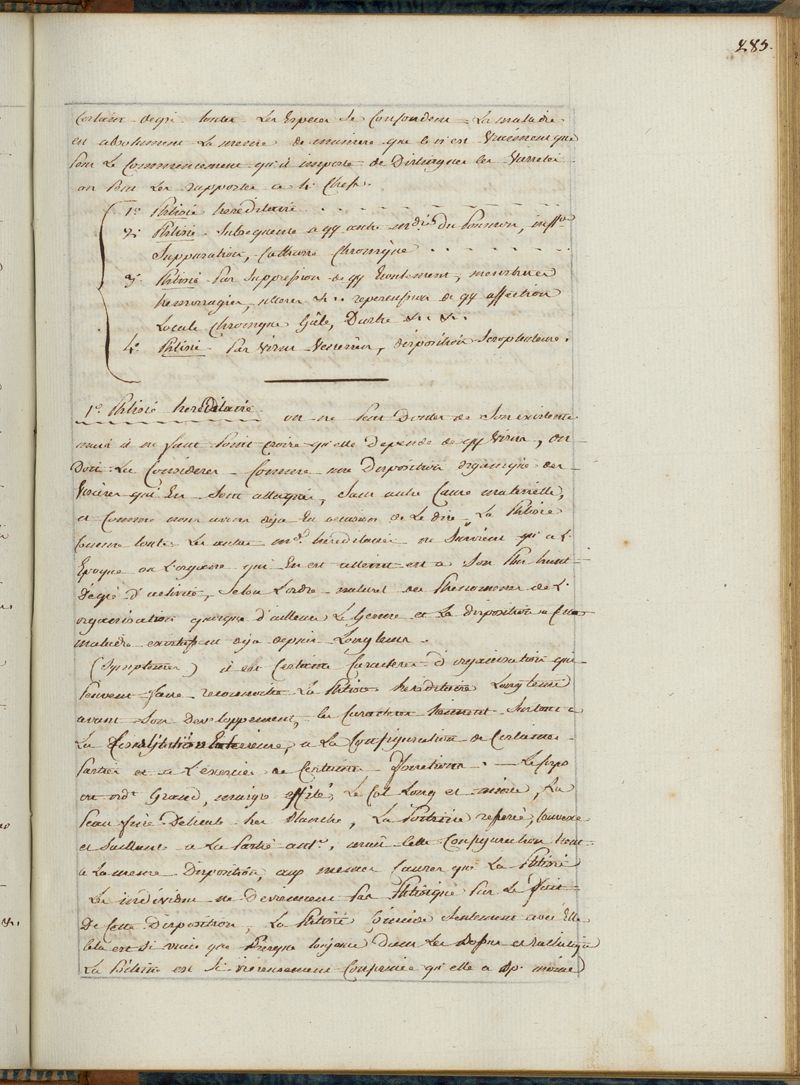 285.
certain degré toutes les Especes se Confondent. La maladie
est absolument la meme de maniere que ce n'est vraiment que
pour le Commencement qu'il importe de Distinguer les varietés
on peut les rapporter a 4 Chefs.
1.° Phtisie hereditaire . . . . . .
2.° Phtisie Subsequente a qq autre m.dies du Poumon, inff.on
Suppuration, Catharre Chronique . . . . . .
3.° Phtisie par Suppression de qq Ecoulement, menstrues
hemorragies, ulceres &.. repercussion de qq affection
Locale Chronique Gâle, Dartre &. &.
4.° Phtisie par virus venerien, disposition Scrophuleuse.
1.° Phtisie hereDitaire on ne peut Douter de Son existence
mais il ne faut point croire qu'elle Depende de qq virus, on
Doit la Considerer Comme une Disposition organique des
visceres qui En Sont attaqués, Sans autre Cause materielle,
et Comme nous avons deja Eu occasion de Le dire, La Phtisie
Comme toutes les autres m.d. hereditaires ne Survient qu'a l'
Epoque ou L'organe qui En est atteint est a Son Plus haut
Degré D'activité, Selon L'ordre naturel des Phenomenes de L'
organisation quoique d'ailleurs Le Germe et La disposition a Cette
maladie existassent deja depuis Longtems.
(Symptomes) il est Certains Caracteres d'organisation qui
peuvent faire reconnoitre La Phtisie hereditaire Longtems
avant Son Developpement, les Caracteres tiennent Surtout a
La Constitution Exterieure, a La Configuration de Certaines
Parties et a L'exercice de Certaines fonctions. — Le Corps
est ord.t Grand, maigre effilé, Le Col Long et mince, La
Peau fine Delicate tres Blanche, La Poitrine resserée, Convexe
et Saillante a La Partie ant.re, mais Cette Configuration tient
a La meme Disposition, aux memes Causes que La Phtisie
Les individus ne Deviennent Pas Phtisiques Par Le fait
De Cette Disposition, La Phtisie Coincide Seulement avec Elle
Cela est Si vrai que Presque toujours Dans Les et Rachitiques
La Poitrine est Si vicieusement Conformée qu'elle a moins